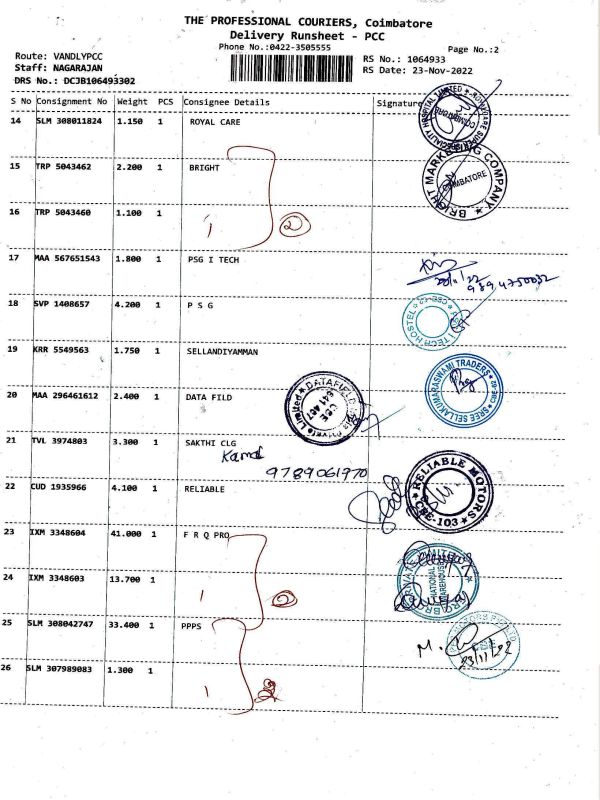 THE PROFESSIONAL COURIERS, Coimbatore
Delivery Runsheet - PCC
Phone No.:0422-3505555
Page No.:2
Route: VANDLYPCC
Staff: NAGARAJAN
DRS No.: DCJB106493302
RS No.: 1064933
RS Date: 23-Nov-2022
S No Consignment No Weight PCS Consignee Details Signature
14 SLM 308011824 1.150 1 ROYAL CARE
COIMBATORE
15 TRP 5043462 2.200 1 BRIGHT
BRIGHT MARKETING COMPANY
COIMBATORE
16 TRP 5043460 1.100 1
1 2
17 MAA 567651543 1.800 1 PSG I TECH
9894750032
18 SVP 1408657 4.200 1 P S G
19 KRR 5549563 1.750 1 SELLANDIYAMMAN
SREE SELLAKUMARASWAMI TRADERS
20 MAA 296461612 2.400 1 DATA FILD
DATAFIELD
CBE
641 407
21 TVL 3974803 3.300 1 SAKTHI CLG
Kamal
9789061970
22 CUD 1935966 4.100 1 RELIABLE
RELIABLE MOTORS
CBE-103
23 IXM 3348604 41.000 1 F R Q PRO
24 IXM 3348603 13.700 1
1 2
25 SLM 308042747 33.400 1 PPPS
M.
23/11/22
26 SLM 307989083 1.300 1
1 2